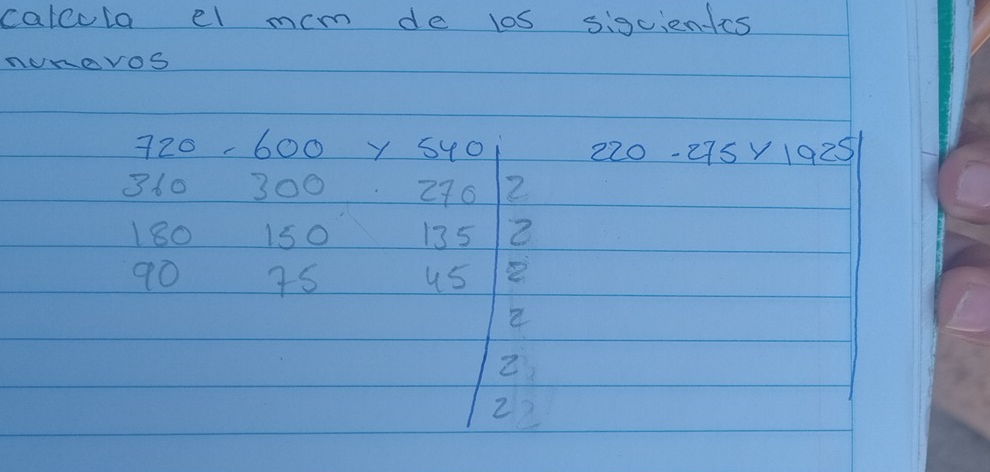 calcula el mcm de los siguientes
numeros
720 - 600 y 540 220 - 275 y 1925
360 300 270 2
180 150 135 2
90 75 45 2
2
2
2 2